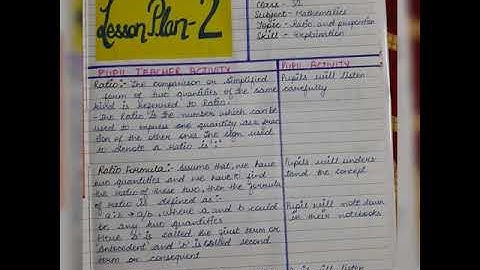 Lesson Plan-2
Class - VI
Subject - Mathematics
Topic - Ratio and proportion
Skill - Explanation
PUPIL TEACHER ACTIVITY
PUPIL ACTIVITY
Ratio:- The comparison or simplified
form of two quantities of the same
kind is referred to Ratio.
- The Ratio is the number which can be
used to express one quantity as a frac
tion of the other ones. The sign used
to denote a ratio is ':'
Pupils will listen
carefully
Ratio Formula:- Assume that, we have
two quantities and we have to find
the ratio of these two, then the formula
of ratio is defined as:-
a:b → a/b, where a and b could
be any two quantities
Here 'a' is called the first term or
antecedent and 'b' is called second
term or consequent
Pupils will unders
tand the concept
Pupil will note down
in their notebooks
will listen